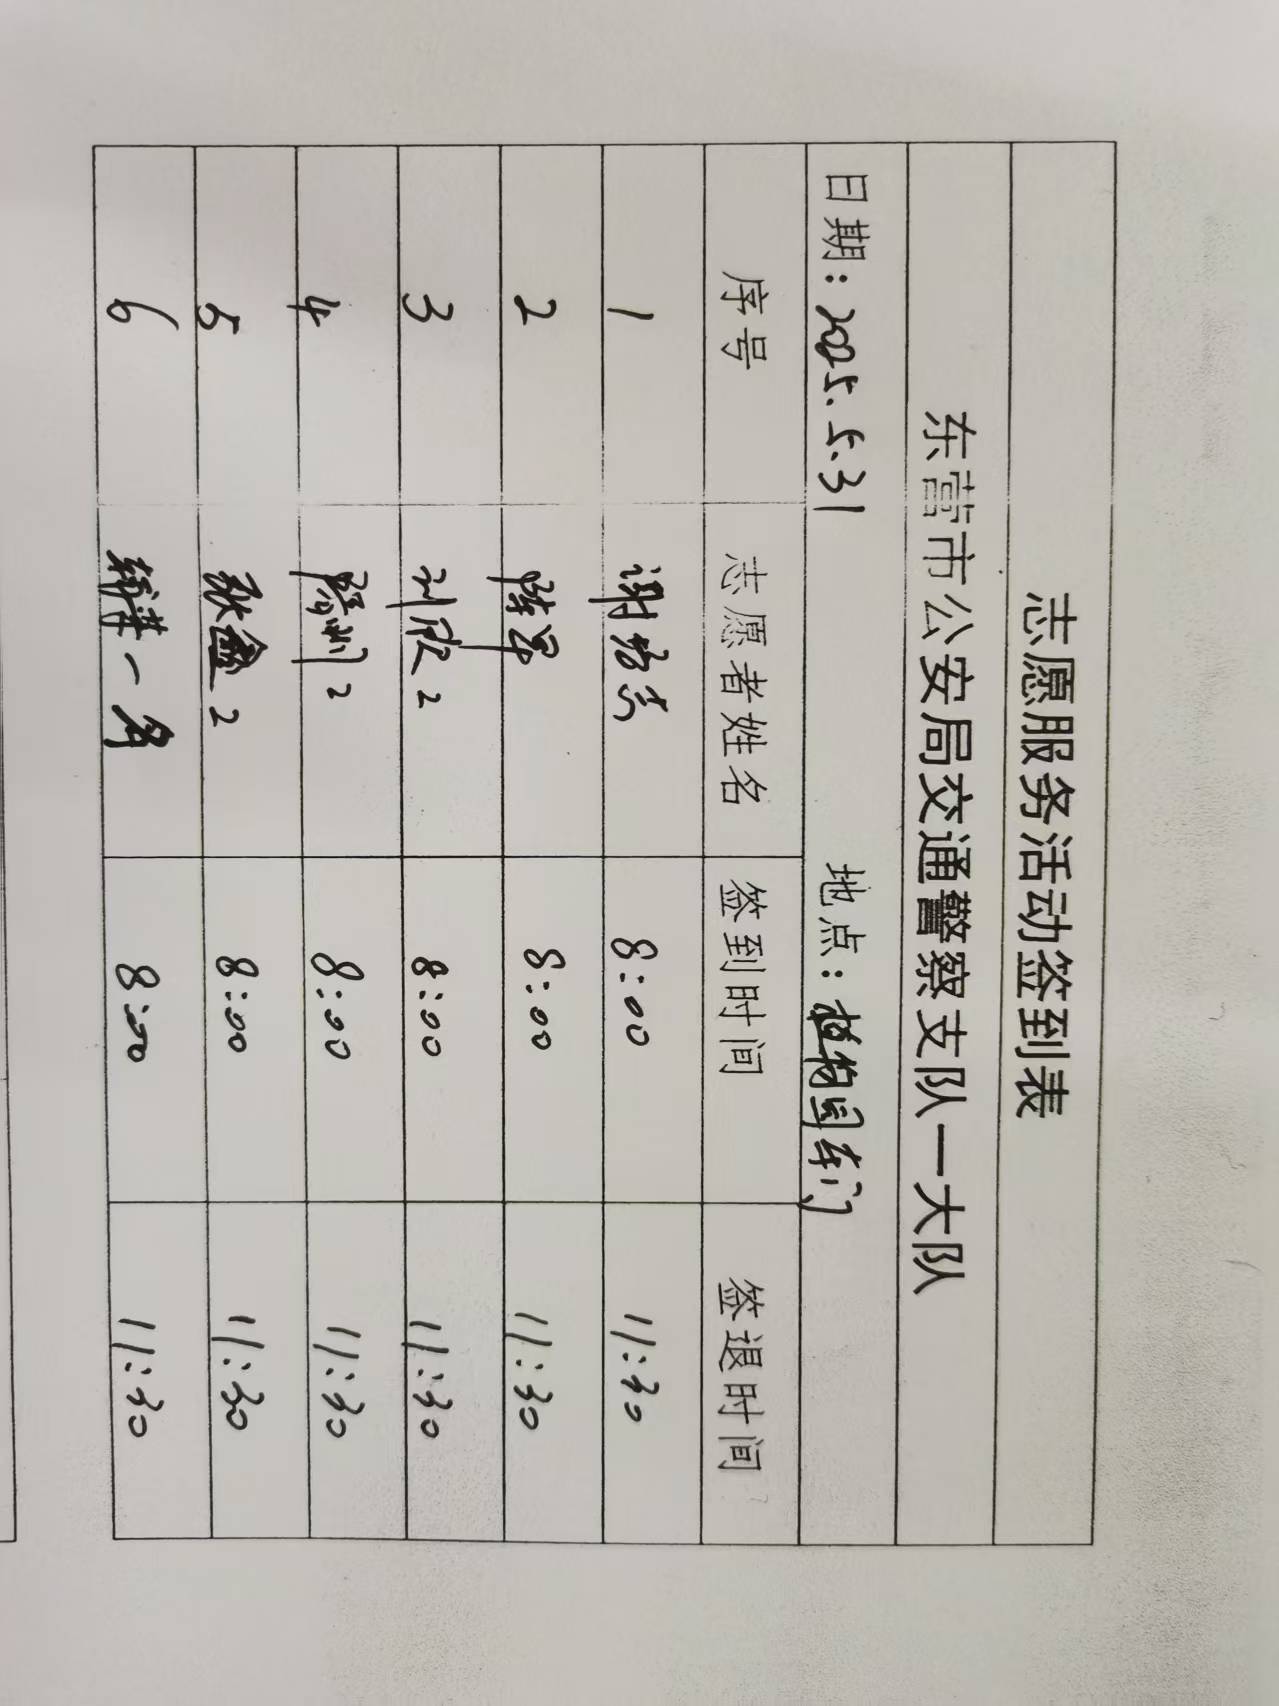 志愿服务活动签到表
东营市公安局交通警察支队一大队
日期：2025.5.31 地点：植物园东门
序号 志愿者姓名 签到时间 签退时间
1 谢 8:00 11:30
2 陈军 8:00 11:30
3 刘欣2 8:00 11:30
4 2 8:00 11:30
5 张鑫2 8:00 11:30
6 韩 一 8:00 11:30